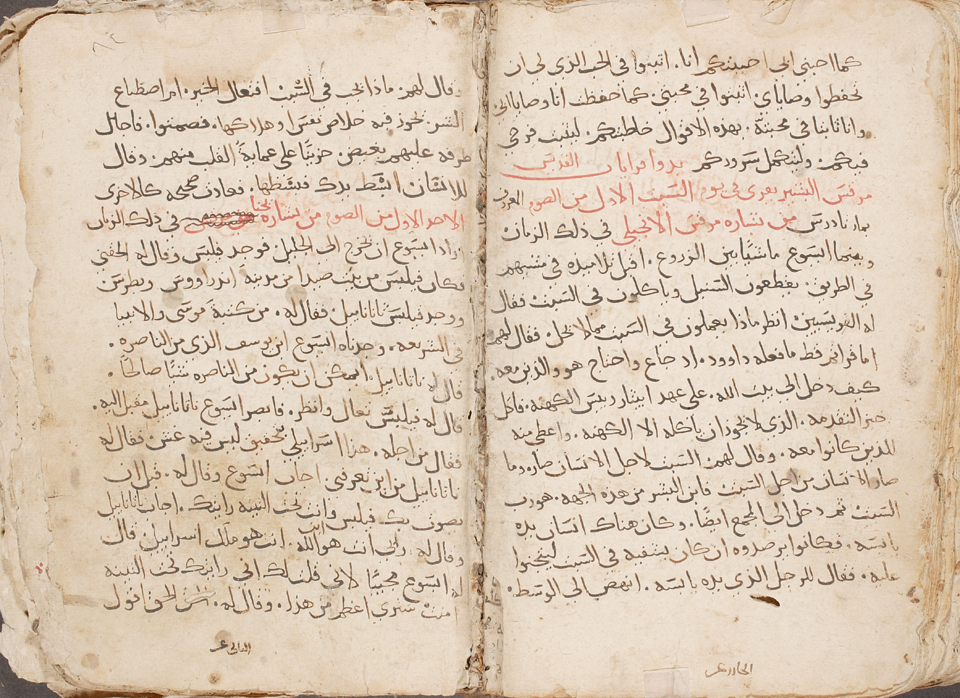 كما احبني ابي احببتكم انا. اثبتوا في الحب الذي لي ان
تحفظوا وصاياي اثبتوا في محبتي. كما حفظت انا وصايا ابي
وانا ثابتا في محبته. بهذه الاقوال خاطبتكم. ليثبت فرحي
فيكم. وليكمل سروركم
مرقس البشير يقرى في يوم السبت الاول من الصوم
من بشاره مرقس الانجيلي في ذلك الزمان
وبينما ايسوع ماشيا بين الزروع. اقبل تلاميذه في مشيهم
في الطريق. يقطعون السنبل وياكلون في السبت فقال
له الفريسيين انظر ماذا يعملون في السبت مما لا يحل. فقال لهم
اما قراتم قط ما فعله داوود. اذ جاع واحتاج هو والذين معه.
كيف دخل الى بيت الله. على عهد ابيثار رييس الكهنه. فاكل
خبز التقدمه. الذي لا يجوز ان ياكله الا الكهنه. واعطى منه
للذين كانوا معه. وقال لهم. السبت لاجل الانسان صار. وما
صار الانسان من اجل السبت فابن البشر من هذه الجهه. هو رب
السبت ثم دخل الى المجمع ايضا. وكان هناك انسان يده
يابسه. فكانوا يرصدوه ان كان يشفيه في السبت ليحتجوا
عليه. فقال للرجل الذي يده يابسه. انهض الى الوسط.
وقال لهم. ماذا يجب في السبت افتعال الخير. ام اصطناع
الشر نحوز فيه خلاص نفس او هلاكها. فصمتوا. فاجال
طرفه عليهم بغيض حزينا على عماية القلب منهم. وقال
للانسان ابسط يدك فبسطها. فعادت صحيحه كالاخرى
الاحد الاول من الصوم من بشاره يحنا في ذلك الزمان
اراد ايسوع ان يخرج الى الجليل فوجد فيلبس وقال له الحقني
فكان فيلبس من بيت صيدا من مدينة اندراووس وبطرس
ووجد فيلبس ناتانايل فقال له. من كتبة موسى والانبيا
في الشريعه. وجدناه ايسوع ابن يوسف الذي من الناصره.
قال له ناتانايل. ايمكن ان يكون من الناصره شيا صالحا.
قال له فيلبس تعال وانظر. فابصر ايسوع ناتانايل مقبل اليه.
فقال من اجله. هذا اسراييلي بحقيق ليس فيه غش فقال له
ناتانايل من اين تعرفني اجاب ايسوع وقال له. قبل ان
يصوت بك فيلبس وانت تحت التينه رايتك. اجاب ناتانايل
وقال له. ربي انت هو ابن الله. انت هو ملك اسراييل قال
له ايسوع مجيبا لاني قلت لك اني رايتك تحت التينه
امنت سترى اعظم من هذا. وقال له. الحق اقول